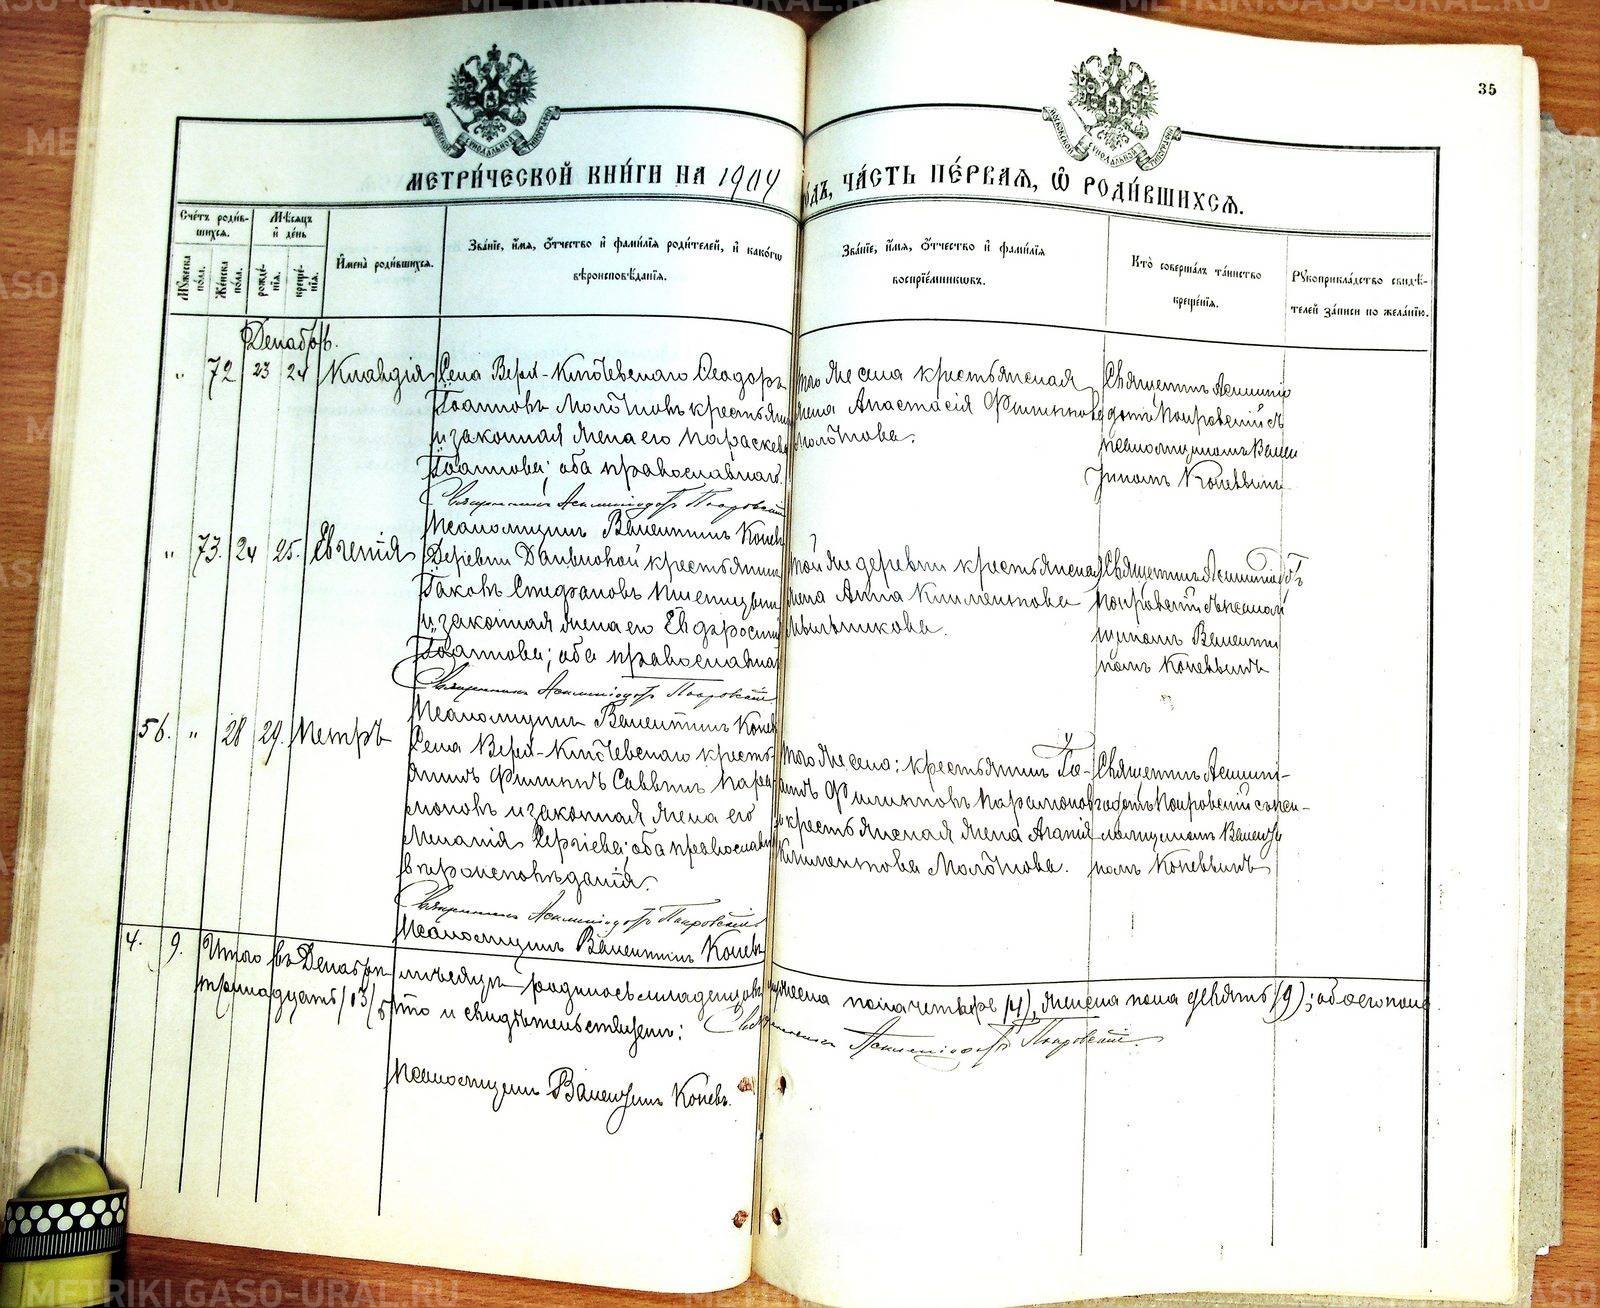 35
МЕТРИ́ЧЕСКОЙ КНИ́ГИ НА 1904 ГО́ДЪ, ЧА́СТЬ ПЕ́РВАѦ, Ѡ҆ РОДИ́ВШИХСѦ.
Сче́тъ роди́вшихся.
Мѣ́сяцъ и҆ де́нь
Мꙋ́жеска по́ла.
Же́нска по́ла.
рожде́нїя.
креще́нїя.
И҆мена̀ роди́вшихся.
Зва́нїе, и҆́мя, ѻ҆́тчество и҆ фами́лїя роди́телей, и҆ како́гѡ
вѣроисповѣ́данїя.
Зва́нїе, и҆́мя, ѻ҆́тчество и҆ фами́лїя
воспрїе́мникѡвъ.
Кто̀ соверша́лъ та́инство
креще́нїя.
Рꙋкоприкла́дство свидѣ́-
телей за́писи по жела́нїю.
Декабрь.
" 72 23 24 Клавдія
Села Верхъ-Ключевскаго Ѳеодоръ
Іоанновъ Молотковъ крестьянинъ
и законная жена его Параскева
Іоаннова; оба православнаго.
Священникъ Асклипіодотъ Покровскій
Псаломщикъ Валентинъ Коневъ
того же села крестьянская
жена Анастасія Филиппова
Священникъ Асклипіо
дотъ Покровскій съ
псаломщикомъ Вален
тиномъ Коневымъ
" 73. 24 25. Евгенія
Деревни крестьянинъ
Іаковъ Стефановъ
и законная жена его Евфросинія
Іоаннова; оба православна
Священникъ Асклипіодотъ Покровскій
Псаломщикъ Валентинъ Коневъ
той же деревни крестьянская
жена Анна Климентова
Мыльникова.
Священникъ Асклипіодотъ
Покровскій съ псалом
щикомъ Валенти
номъ Коневымъ
56. " 28 29. Петръ
Села Верхъ-Ключевскаго кресть-
янинъ Филиппъ Саввинъ Пара
моновъ и законная жена его
Меланія Сергіева; оба православн
вѣроисповѣданія.
Священникъ Асклипіодотъ Покровскій
Псаломщикъ Валентинъ Коневъ
того же села: крестьянинъ Іо-
аннъ Филипповъ Парамоновъ
и крестьянская жена Агапія
Климентова
Священникъ Асклипі-
одотъ Покровскій съ пса-
ломщикомъ Валенти
номъ Коневымъ
4. 9. Итого въ Декабрѣ мѣсяцѣ родилось младенцевъ мужеска пола четыре (4), женска пола девять (9); обоего пола
тринадцать (13) что и свидѣтельствуемъ: Священникъ Асклипіодотъ Покровскій.
Псаломщикъ Валентинъ Коневъ.
METRIKI.GASO-URAL.RU